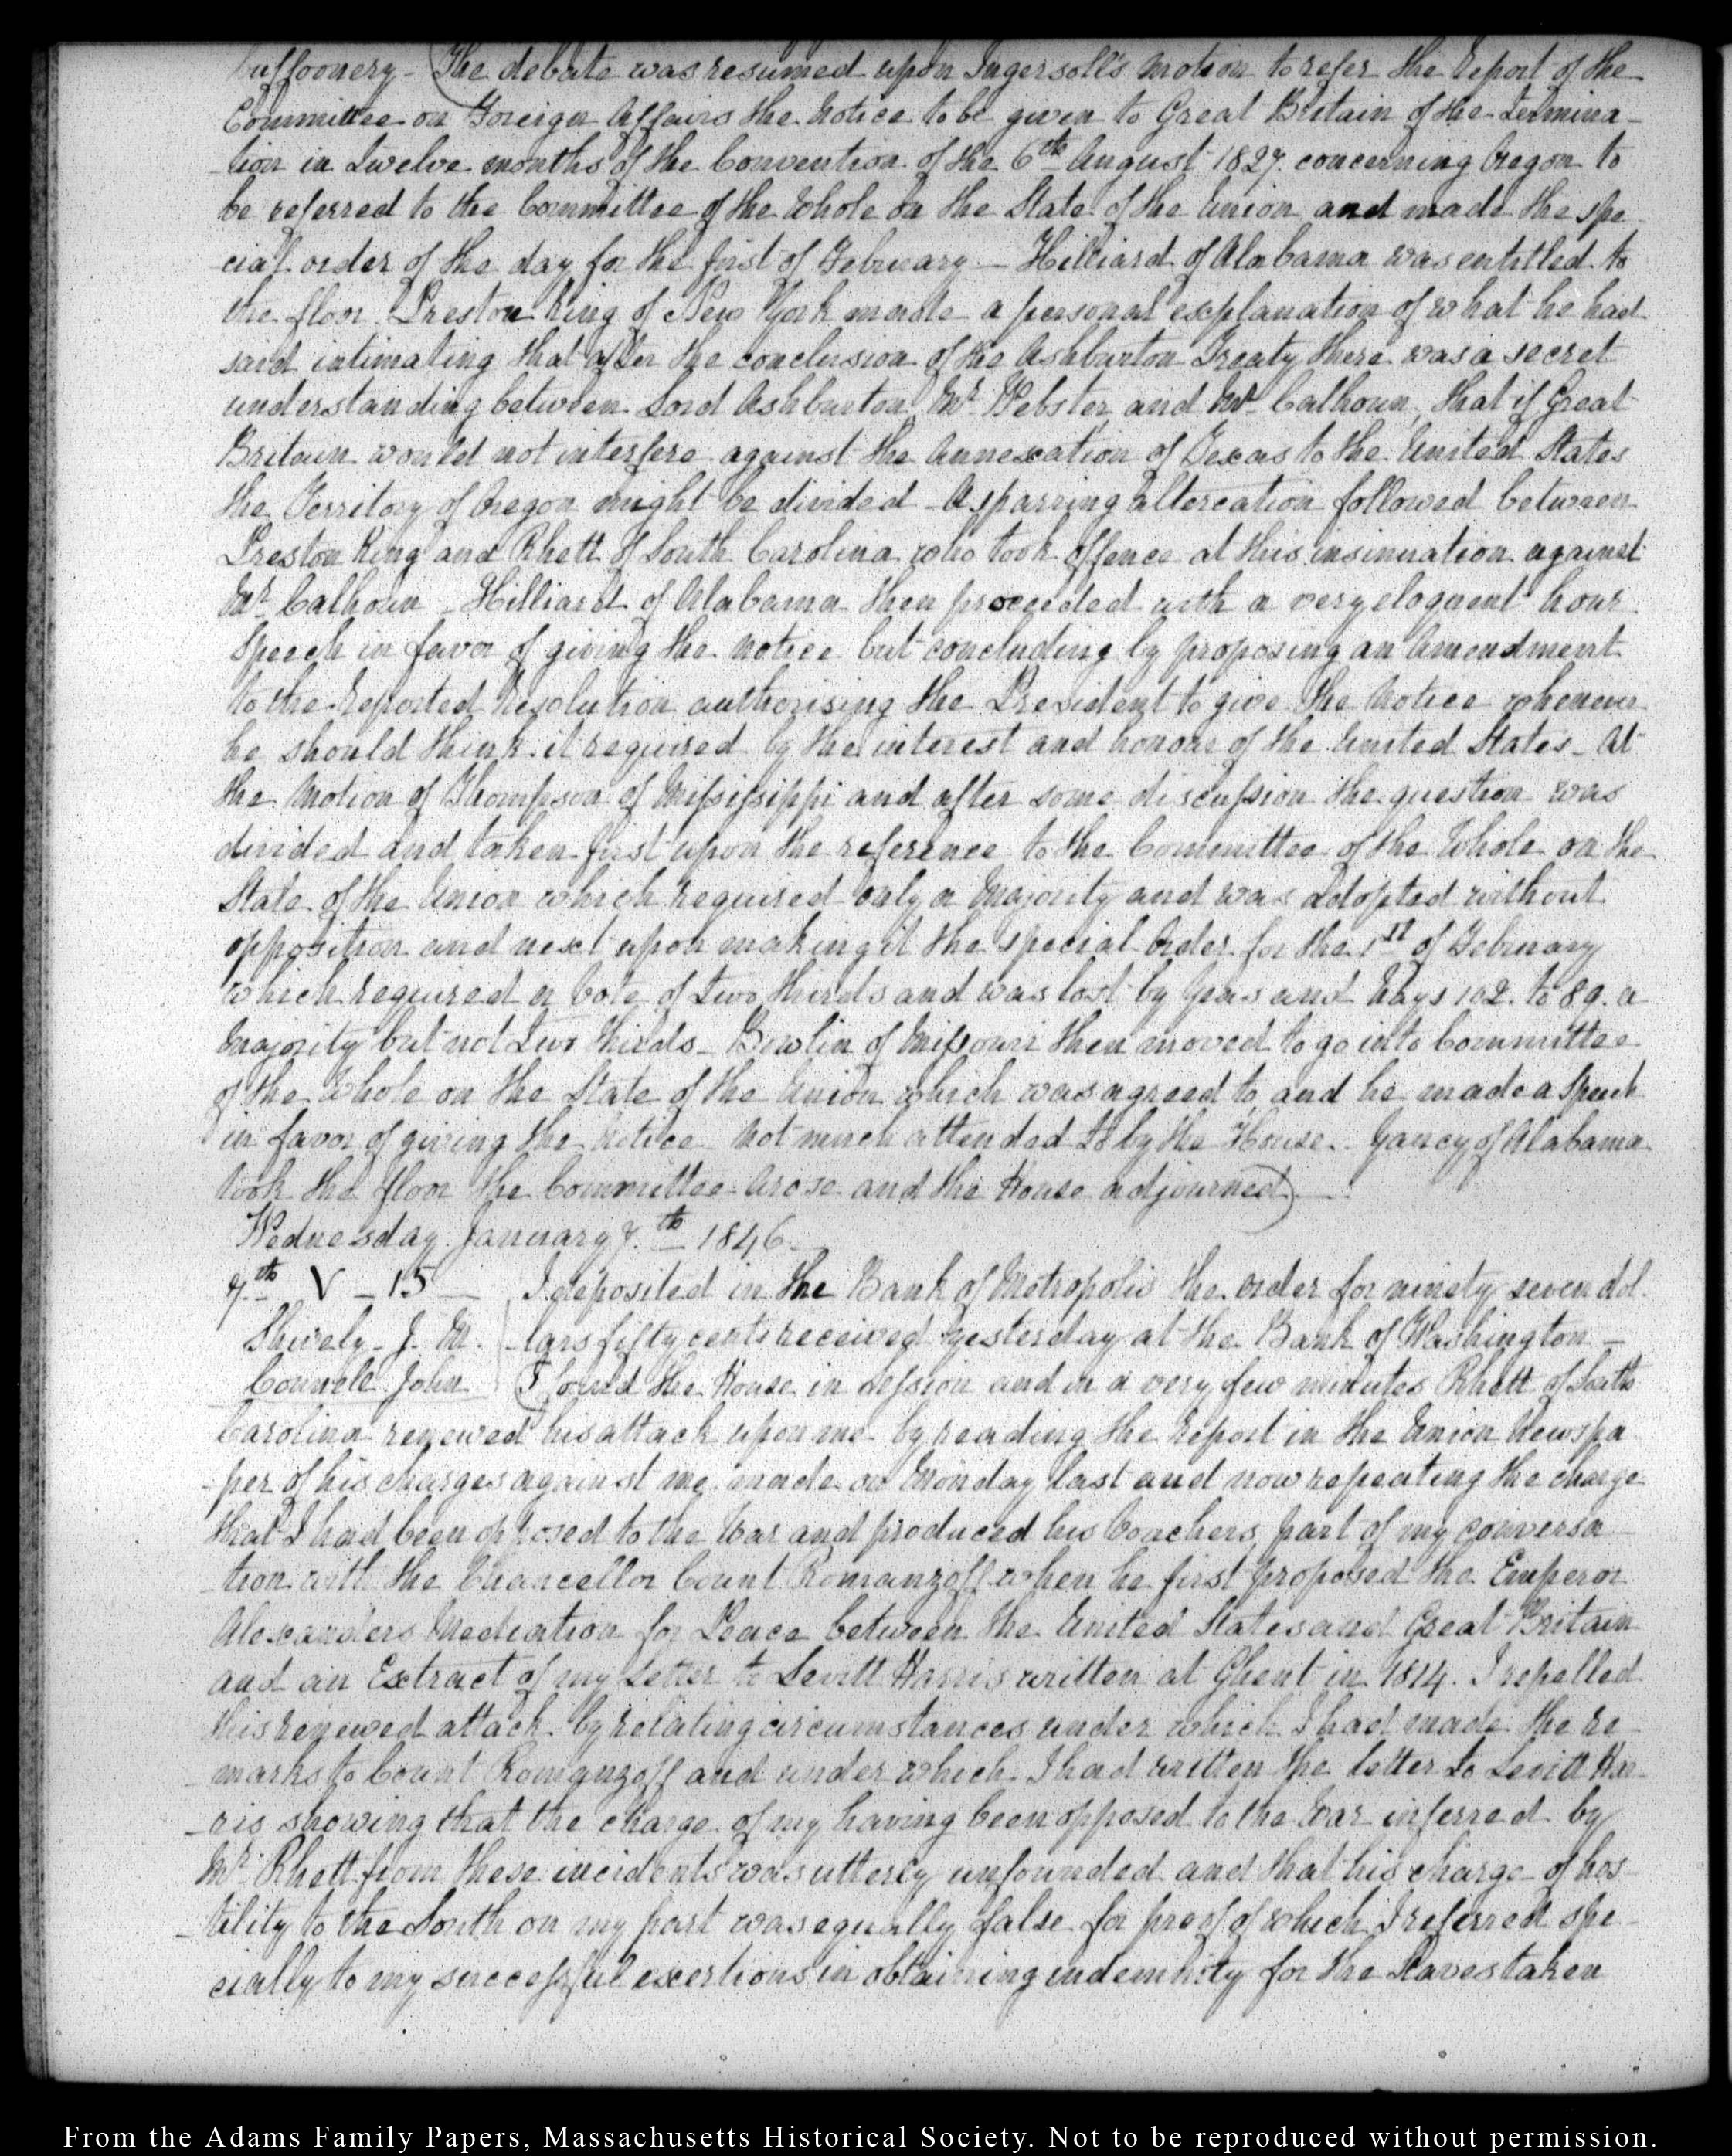 buffoonery – (The debate was resumed upon Ingersoll's motion to refer the report of the
Committee on Foreign Affairs the Notice to be given to Great Britain of the Termina-
-tion in Twelve months of the Convention of the 6th August 1827. concerning Oregon to
be referred to the Committee of the Whole on the State of the Union and made the spe-
cial order of the day for the first of February – Hilliard of Alabama was entitled to
the floor. Preston King of New York made a personal explanation of what he had
said intimating that after the conclusion of the Ashburton Treaty there was a secret
understanding between Lord Ashburton, Mr Webster and Mr Calhoun, that if Great
Britain would not interfere against the Annexation of Texas to the United States
the Territory of Oregon might be divided – A sparring altercation followed between
Preston King and Rhett of South Carolina who took offence at this insinuation against
Mr Calhoun – Hilliard of Alabama then proceeded with a very eloquent hour
Speech in favor of giving the notice but concluding by proposing an Amendment
to the reported resolution authorising the President to give the Notice whenever
he should think it required by the interest and honour of the United States – At
the Motion of Thompson of Missisippi and after some discussion the question was
divided and taken first upon the reference to the Committee of the Whole on the
State of the Union which required only a Majority and was adopted without
opposition and next upon making it the special Order for the 1st of February
which required a Vote of Two thirds and was lost by Yeas and Nays 102. to 89. a
Majority but not Two thirds – Bowlin of Missouri then moved to go into Committee
of the Whole on the State of the Union which was agreed to, and he made a Speech
in favor of giving the Notice not much attended to by the House. Yancy of Alabama
took the floor the Committee Arose and the House adjourned) –
Wednesday January 7.th – 1846 –
7.th V – 15 – I deposited in the Bank of Metropolis the order for ninety seven dol-
Shively – J. M. -lars fifty cents received yesterday at the Bank of Washington –
Connele John (I found the House in session and in a very few minutes Rhett of South
Carolina renewed his attack upon me by reading the report in the Union Newspa
-per of his charges against me made on Monday last and now repeating the charge
that I had been opposed to the War and produced his Vouchers, part of my conversa-
-tion with the Chancellor Count Romanzoff when he first proposed the Emperor
Alexanders Mediation for Peace between the United States and Great Britain
and an Extract of my Letter to Levitt Harris written at Ghent in 1814. I repelled
this renewed attack by relating circumstances under which I had made the re-
-marks to Count Romanzoff and under which I had written the letter to Levitt Har-
-ris showing that the charge of my having been opposed to the War inferred by
Mr Rhett from these incidents was utterly unfounded and that his charge of hos-
-tility to the South on my part was equally false for proof of which I referred spe-
cially to my successful exertions in obtaining indemnity for the Slaves taken
From the Adams Family Papers, Massachusetts Historical Society. Not to be reproduced without permission.